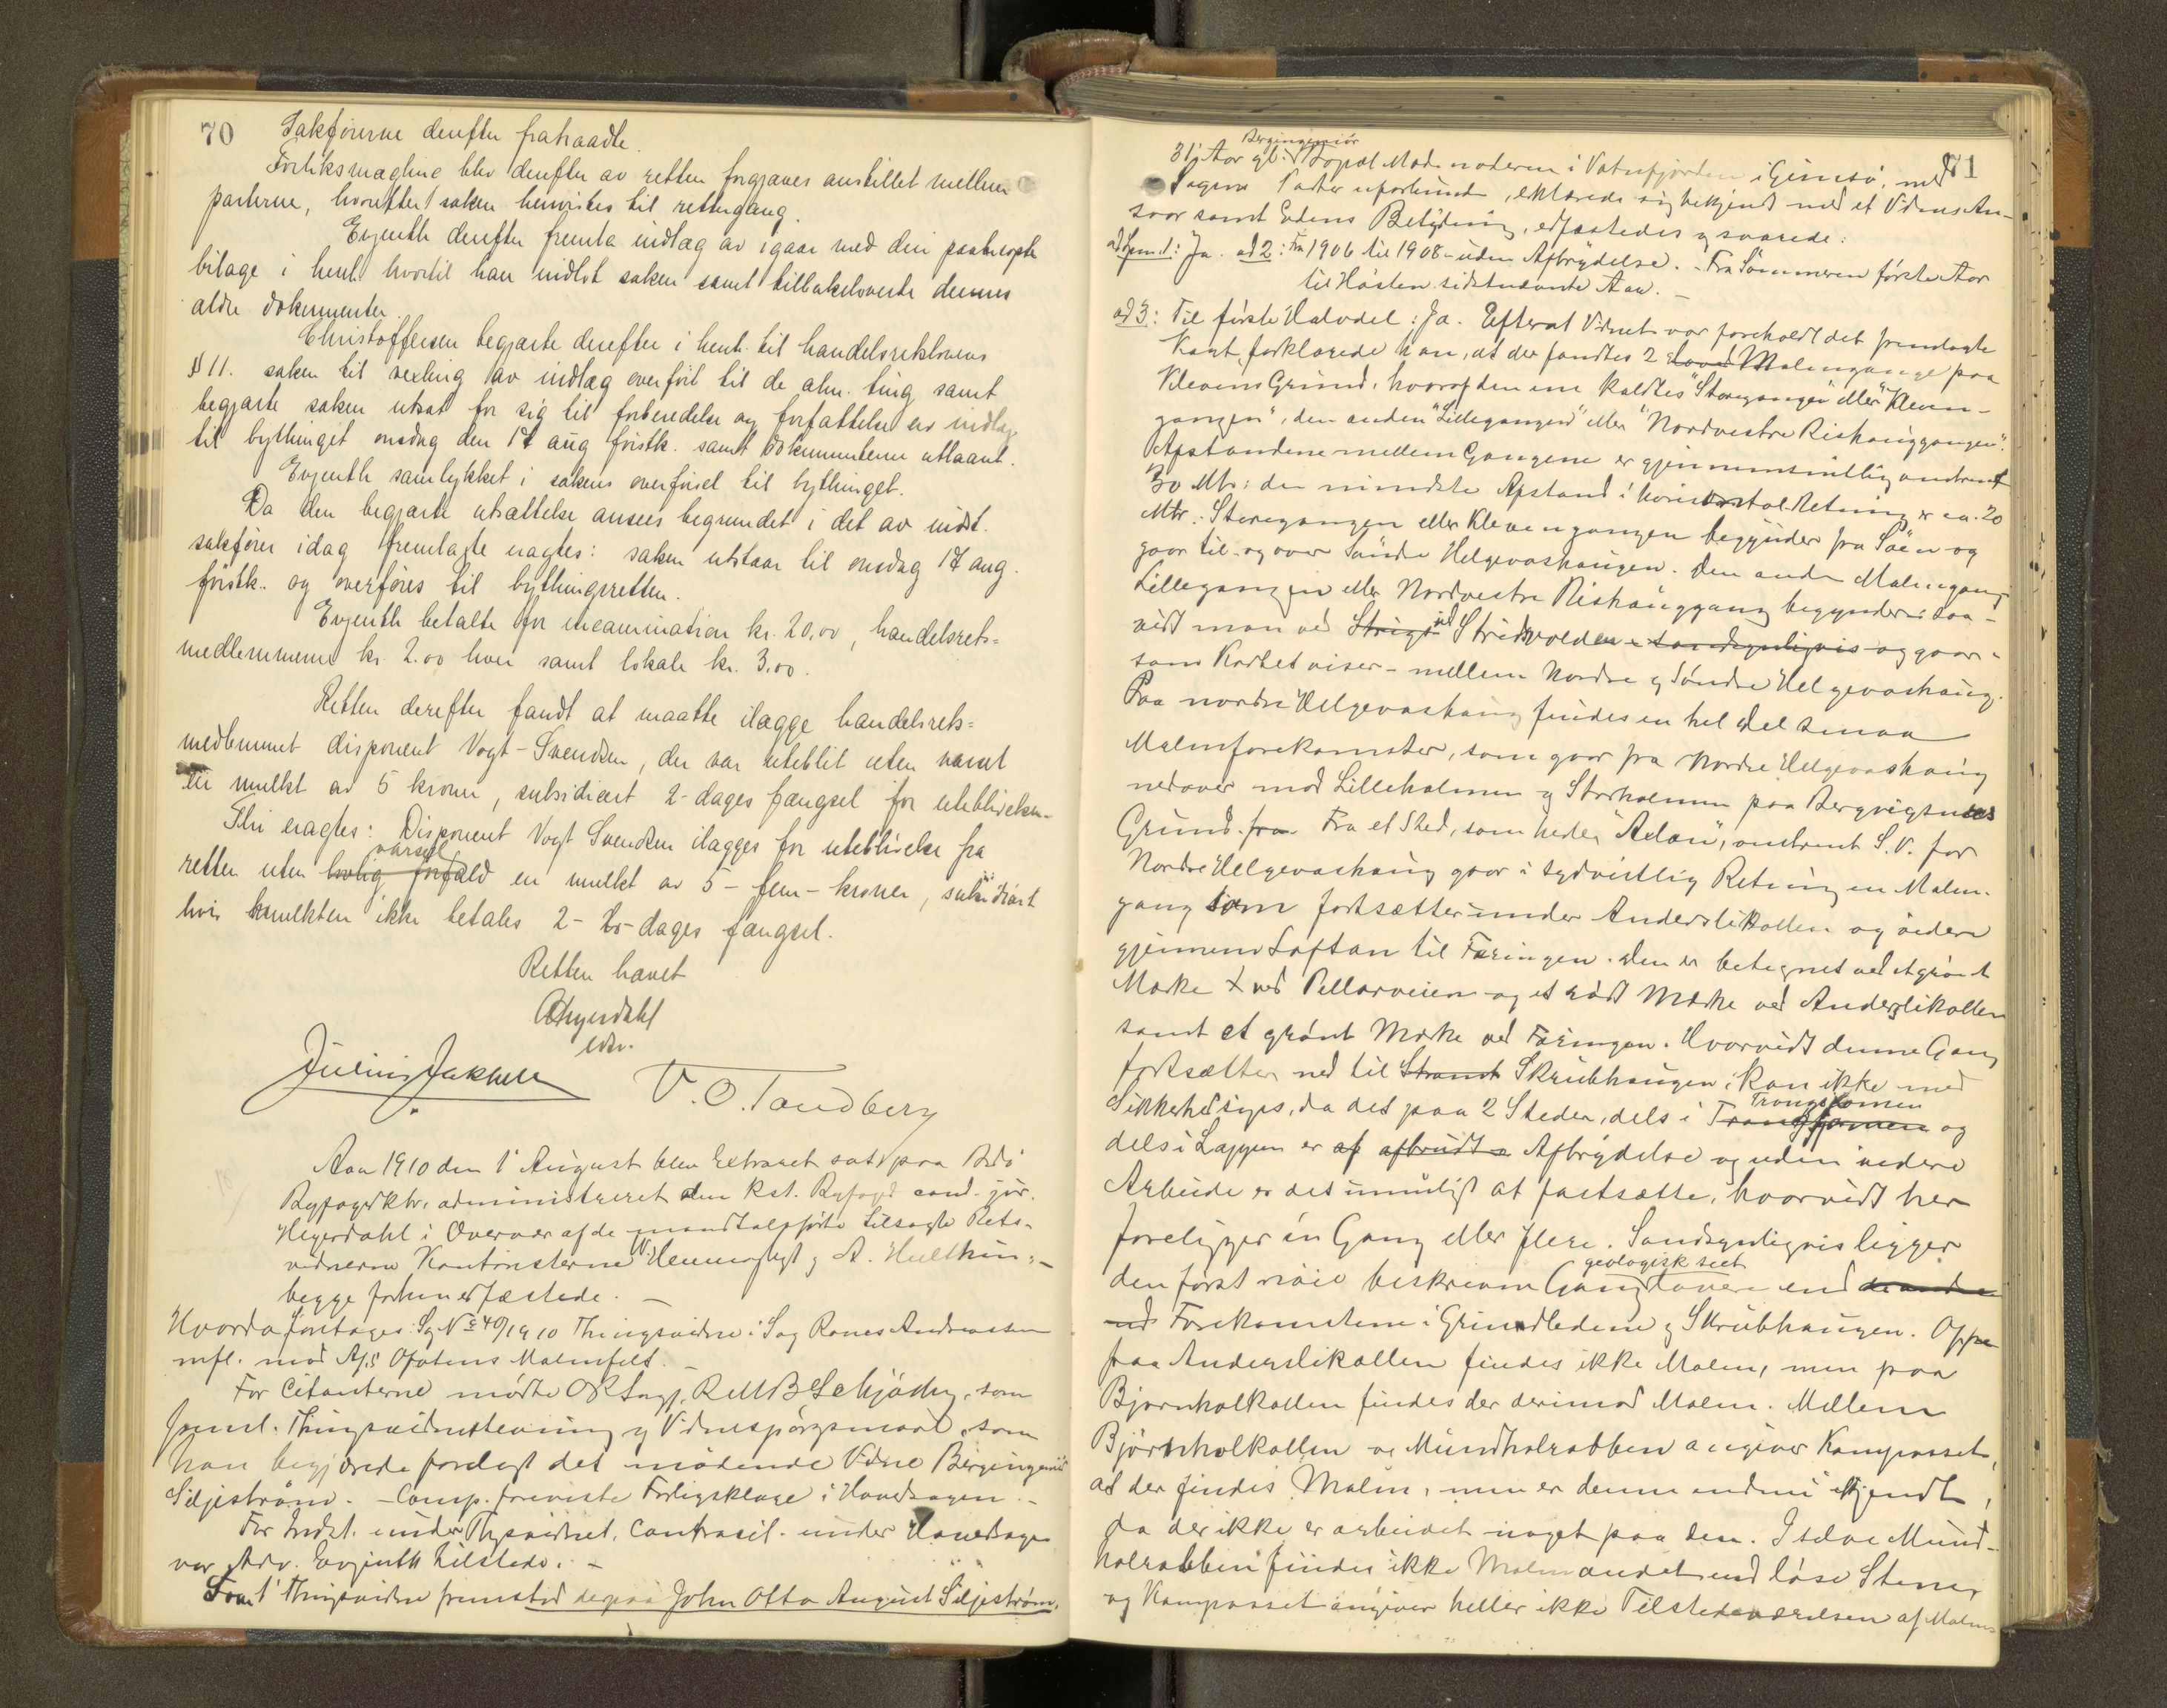 70
Sakførerne derefter fratraadte.
Forliksmægling blev derefter av retten forgjæves anstillet mellem
parterne, hvorefter saken henvistes til rettergang.
Evjenth derefter fremla indlæg av igaar med deri paaberopte
bilage i henh. hvortil han indlot saken samt tilbakeleverte dennes
ældre dokumenter.
Christoffersen begjærte derefter i henh. til handelsretslovens
§ 11. saken til vexling av indlæg overført til de alm. ting samt
begjærte saken utsat for sig til forberedelse og forfattelse av indlæg
til bythinget onsdag den 17 aug førstk. samt dokumenterne utlaant.
Evjenth samtykket i sakens overførsel til bythinget.
Da den begjærte utsættelse ansees begrundet i det av indst.
sakfører idag fremlagte eragtes: saken utstaar til onsdag 17 aug.
førstk. og overføres til bythingsretten.
Evjenth betalte for incamination kr. 20,00, handelsrets=
medlemmerne kr. 2.00 hver samt lokale kr. 3.00.
Retten derefter fandt at maatte ilægge handelsrets=
medlemmet disponent Vogt-Svendsen, der var uteblit uten varsel
en mulkt av 5 kroner, subsidiært 2-dages fængsel for uteblivelsen.
Thi eragtes: Disponent Vogt Svendsen ilægges for uteblivelse fra
varsel
retten uten lovlig forfald en mulkt av 5 - fem - kroner, subsidiært
hvis mulkten ikke betales 2 - to - dages fængsel.
Retten hævet
Hegerdahl
Julius Jakhelln V. O. Tandberg
Aar 1910 den 1' August blev Extraret sat paa Bodø
Byfogedktr. administreret af den kst. Byfoged cand. jur.
Hegerdahl i Overvær af de mandtalsførte tilsagte Rets-
vidnerne Kontoristerne W. Hennig og A. Hulthin;-
begge forhen edfæstede. -
Hvorda foretoges: Sag No 40/1910 Thingsvidne i Sag Rones Andreassen
mfl. mod A/S Ofotens Malmfelt. -
For Citanterne mødte ORSagf. R. M. B. Schjødtz, som
freml. Thingsvidnestevning og Vidnespørgsmaal, som
han begjærede forelagt det mødende Vidne Bergingeniør
Siljestrøm. - Comp. foreviste Forligsklage i Hovedsagen. -
For Indst. under Thsvidnet, Contracit. under Hovedsagen
var Adv. Evjenth tilstede. -
Som 1' Thingsvidne fremstod derpaa John Otto August Siljestrøm,
71
Bergingeniør
31' Aar gl. ved Hopol Malm noderen i Vatnfjorden i Gimsø, med
Sagens Parter uforbunden, erklærede sig bekjendt med et Vidnes An-
svar samt Edens Betydning, edfæstedes og svarede:
ad Spm. 1: Ja. ad 2: Fra 1906 til 1908 - uden Afbrydelse. - Fra Sommeren første Aar
til Høsten sidstnævnte Aar. -
ad 3: Til første Halvdel: Ja. Efterat Vidnet var foreholdt det fremlagte
Kart, forklarede han, at der fandtes 2 Malmgange paa
Klevens Grund, hvoraf den ene kaldtes "Storegangen" eller "Kleven-
gangen", den anden "Lillegangen" eller "Nordvestre Rishauggangen".
Afstandene mellem Gangene er gjennemsnitlig omtrent
30 Mtr; den mindste Afstand i horisontal Retning er ca. 20
Mtr. Storegangen eller Klevengangen begynder fra Søen og
gaar til - og over Søndre Helgevashaugen. Den anden Malmgang
Lillegangen eller Nordvestre Rishauggang begynder - saa-
vidt man ved - ved Stridsvolden - sandsynligvis og gaar -
som Kartet viser - mellem Nordre og Søndre Helgevashaug.
Paa nordre Helgevashaug findes en hel Del smaa
Malmforekomster, som gaar fra Nordre Helgevashaug
nedover mod Lilleholmen og Storholmen paa Bergvigsnes
Grund. fra Fra et Sted, som heder "Aelan", omtrent S.V. for
Nordre Helgevashaug gaar i sydvestlig Retning en Malm-
gang som fortsætter under Anderslikollen og videre
gjennem Loftan til Fæingen. Den er betegnet ved et grønt
Mærke X ved Pellarveien og et rødt Mærke ved Anderslikollen
samt et grønt Mærke ved Fæingen. Hvorvidt denne Gang
fortsætter ned til Skrubhaugen, kan ikke med
Trangskomen
Sikkerhed siges, da det paa 2 Steder, dels i og
dels i Lappen er af afbrudt Afbrydelse og uden videre
Arbeide er det umuligt at fastsætte, hvorvidt her
foreligger én Gang eller flere. Sandsynligvis ligger
geologisk seet
den først nøie beskrevne Gang lavere end de andre
end Forekomstene i Grindledene og Skrubhaugen. Oppe
paa Anderslikollen findes ikke Malm, men paa
Bjørnholkollen findes der derimod Malm. Mellem
Bjørnholkollen og Mundholrabben angiver Kompasset,
at der findes Malm, men er denne endnu ikke kjendt,
da der ikke er arbeidet noget paa den. I selve Mund-
holrabben findes ikke Malm andet end løse Stene,
og Kompasset angiver heller ikke Tilstedeværelsen af Malm